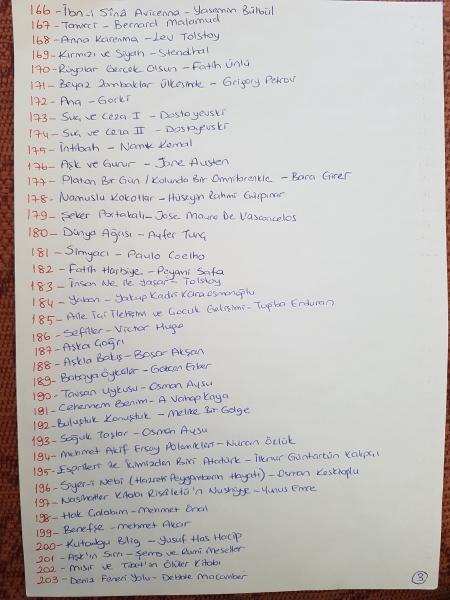 166 - İbn-i Sînâ Avicenna - Yasemin Bülbül
167 - Tamirci - Bernard Malamud
168 - Anna Karenina - Lev Tolstoy
169 - Kırmızı ve Siyah - Stendhal
170 - Rüyalar Gerçek Olsun - Fatih Ünlü
171 - Beyaz Zambaklar Ülkesinde - Grigory Petrov
172 - Ana - Gorki
173 - Suç ve Ceza I - Dostoyevski
174 - Suç ve Ceza II - Dostoyevski
175 - İntibah - Namık Kemal
176 - Aşk ve Gurur - Jane Austen
177 - Platon Bir Gün / Kolunda Bir Ornitorenkle - Bora Girer
178 - Namuslu Kokotlar - Hüseyin Rahmi Gürpınar
179 - Şeker Portakalı - Jose Mauro De Vasconcelos
180 - Dünya Ağrısı - Ayfer Tunç
181 - Simyacı - Paulo Coelho
182 - Fatih Harbiye - Peyami Safa
183 - İnsan Ne ile Yaşar - Tolstoy
184 - Yaban - Yakup Kadir Karaosmanoğlu
185 - Aile İçi İletişim ve Çocuk Gelişimi - Tuğba Erduran
186 - Sefiller - Victor Hugo
187 - Aşka Çağrı
188 - Aşkla Bakış - Başar Akşan
189 - Babaya Öyküler - Gökçen Ezber
190 - Tavşan Uykusu - Osman Aysu
191 - Cehennem Benim - A Vahap Kaya
192 - Buluştuk Konuştuk - Melike Bir Gölge
193 - Soğuk Taşlar - Osman Aysu
194 - Mehmet Akif Ersoy Polemikleri - Nuran Özlük
195 - Esprileri ile İçimizden Biri Atatürk - İlknur Güntürkün Kalıpçı
196 - Siyer-i Nebi (Hazreti Peygamberin Hayatı) - Osman Keskioğlu
197 - Nasihatler Kitabı Risâletü'n Nushiyye - Yunus Emre
198 - Hak Galabım - Mehmet Önal
199 - Benefşe - Mehmet Akar
200 - Kutadgu Bilig - Yusuf Has Hacip
201 - Aşk'ın Sırrı - Şems ve Rumi Meseller
202 - Mısır ve Tibet'in Ölüler Kitabı
203 - Deniz Feneri Yolu - Debbie Macomber
3